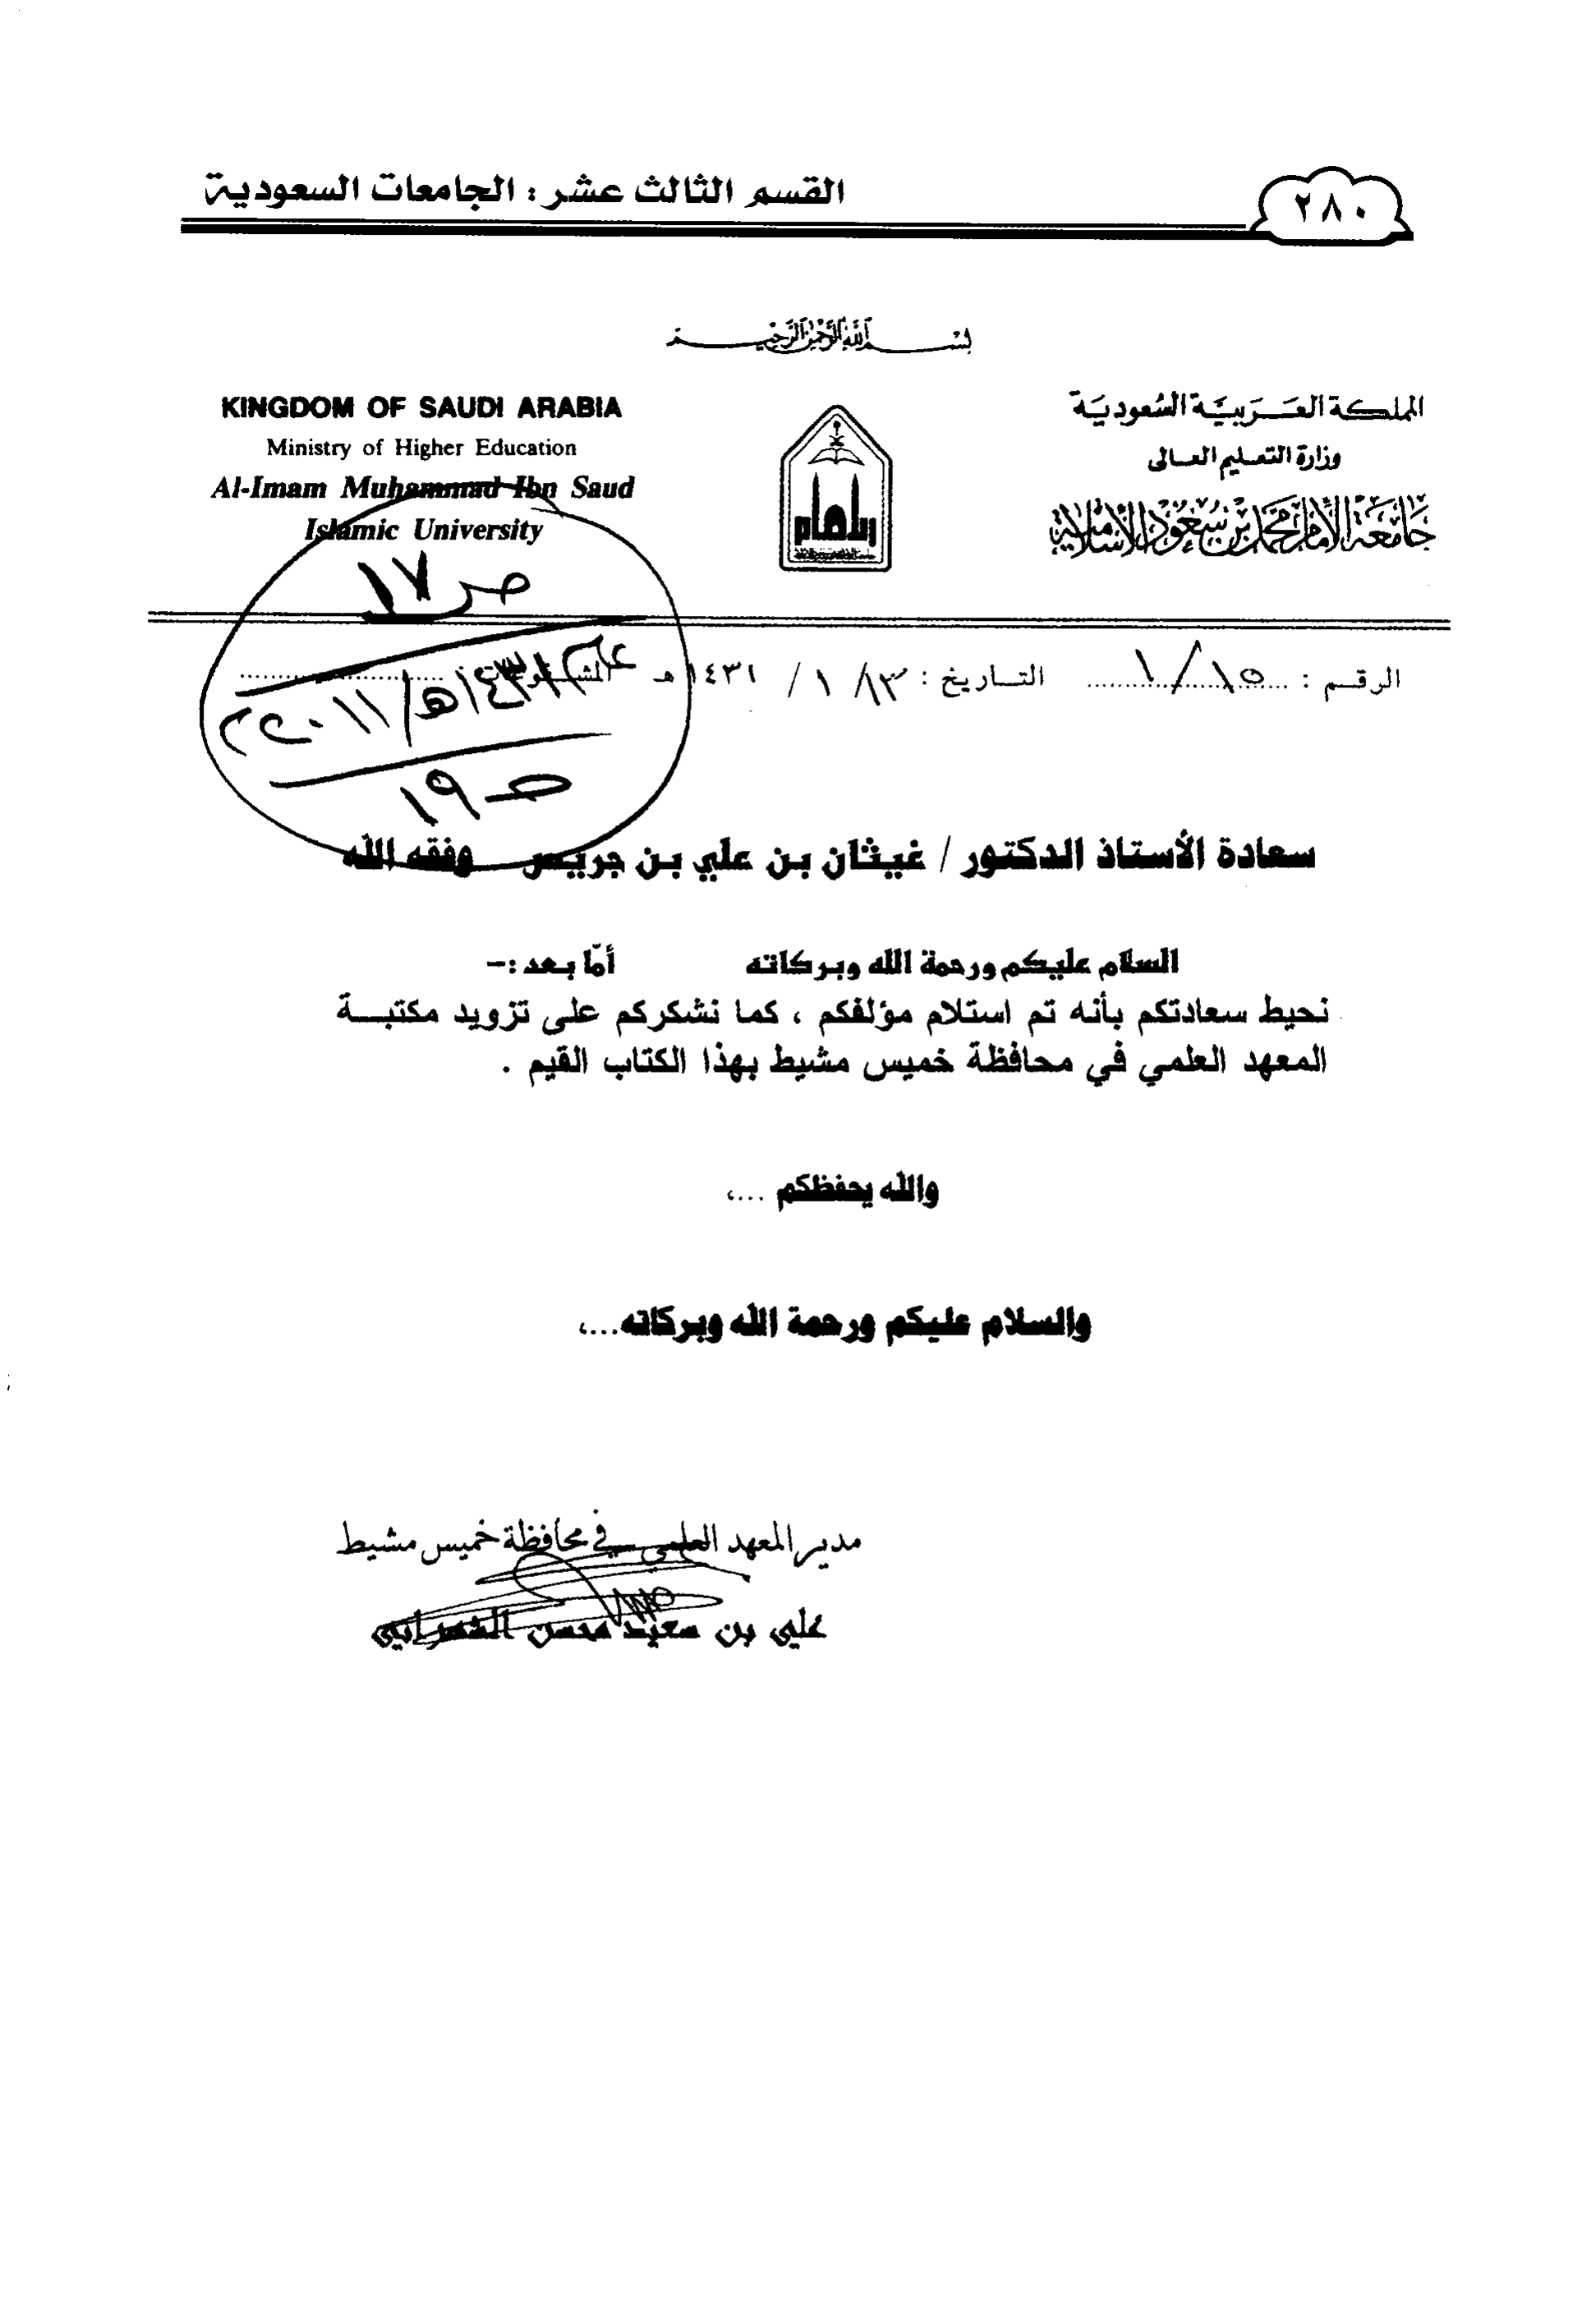 القسم الثالث عشر: الجامعات السعودية
٢٨٠
بسم الله الرحمن الرحيم
المملكة العربية السعودية
وزارة التعليم العالى
جامعة الإمام محمد بن سعود الإسلامية
KINGDOM OF SAUDI ARABIA
Ministry of Higher Education
Al-Imam Muhammad Ibn Saud
Islamic University
ص ١٧
الرقم : ١/١٥ التاريخ : ١٣/ ١ / ١٤٣١هـ
١٤٣١هـ/٢٠١١م
ص ١٩
سعادة الأستاذ الدكتور / غيثان بن علي بن جريس وفقه الله
السلام عليكم ورحمة الله وبركاته أمّا بعد :-
نحيط سعادتكم بأنه تم استلام مؤلفكم ، كما نشكركم على تزويد مكتبة
المعهد العلمي في محافظة خميس مشيط بهذا الكتاب القيم .
والله يحفظكم ...،
والسلام عليكم ورحمة الله وبركاته...،
مدير المعهد العلمي في محافظة خميس مشيط
علي بن سعيد محسن الشهراني